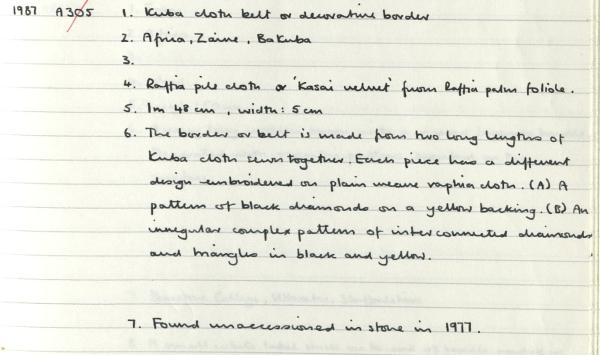 1987 A305 1. Kuba cloth belt or decorative border
2. Africa, Zaire, BaKuba
3.
4. Raffia pile cloth or 'Kasai velvet' from Raffia palm foliole.
5. 1m 48cm, width: 5cm
6. The border or belt is made from two long lengths of
Kuba cloth sewn together. Each piece has a different
design embroidered on plain weave raphia cloth. (A) A
pattern of black diamonds on a yellow backing. (B) An
irregular complex pattern of interconnected diamonds
and triangles in black and yellow.
7. Found unaccessioned in store in 1977.